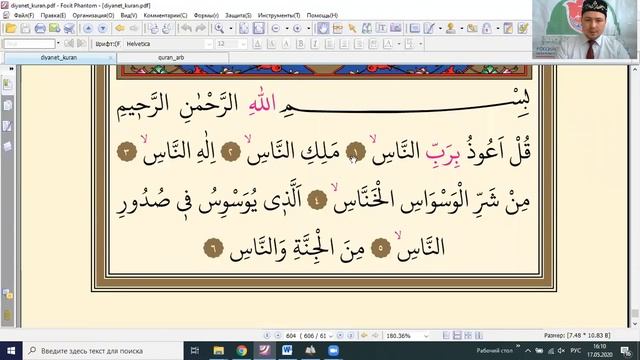 diyanet_kuran.pdf - Foxit Phantom - [diyanet_kuran.pdf]
Файл(F) Правка(E) Организация(G) Документ(D) Комментарии(C) Формы(r) Защита(S) Инструменты(T) Закладки(B) Справка(H)
Шрифт[F] Helvetica 12
diyanet_kuran quran_arb
بِسْمِ اللّٰهِ الرَّحْمٰنِ الرَّحٖيمِ
قُلْ اَعُوذُ بِرَبِّ النَّاسِۙ ١ مَلِكِ النَّاسِۙ ٢ اِلٰهِ النَّاسِۙ ٣
مِنْ شَرِّ الْوَسْوَاسِ الْخَنَّاسِۙ ٤ اَلَّذٖى يُوَسْوِسُ فٖى صُدُورِ
النَّاسِۙ ٥ مِنَ الْجِنَّةِ وَالنَّاسِ ٦
604 ( 606 / 61 180.36% Размер: [7.48 * 10.83 В]
Введите здесь текст для поиска
Рабочий стол РУС 16:10
17.05.2020